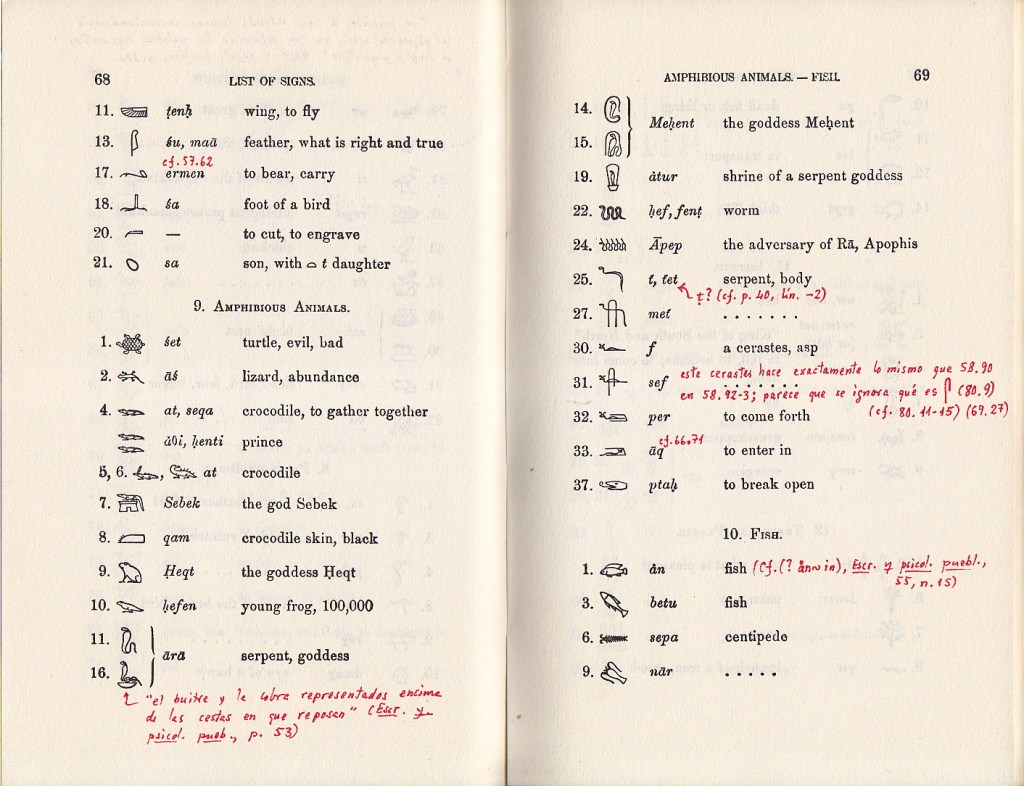 68 LIST OF SIGNS.
11. ṭenḥ wing, to fly
13. śu, maā feather, what is right and true
cf. 57.62
17. ermen to bear, carry
18. śa foot of a bird
20. — to cut, to engrave
21. sa son, with t daughter
9. AMPHIBIOUS ANIMALS.
1. śet turtle, evil, bad
2. āś lizard, abundance
4. at, seqa crocodile, to gather together
ȧθi, ḥenti prince
5, 6. , at crocodile
7. Sebek the god Sebek
8. qam crocodile skin, black
9. Ḥeqt the goddess Ḥeqt
10. ḥefen young frog, 100,000
11.
ārā serpent, goddess
16.
"el buitre y la cobra representados encima
de las cestas en que reposan" (Escr. y
psicol. pueb., p. 53)
AMPHIBIOUS ANIMALS. — FISH. 69
14.
Meḥent the goddess Meḥent
15.
19. ȧtur shrine of a serpent goddess
22. ḥef, fent worm
24. Āpep the adversary of Rā, Apophis
25. t, tet serpent, body
ṭ? (cf. p. 40, lín. -2)
27. met . . . . . . .
30. f a cerastes, asp
este cerastes hace exactamente lo mismo que 58.90
31. sef . . . . . . .
en 58.92-3; parece que se ignora qué es (80.9)
(cf. 80.11-15) (69.27)
32. per to come forth
cf. 66.71
33. āq to enter in
37. ptaḥ to break open
10. FISH.
1. ȧn fish (Cf. (? in), Escr. y psicol. puebl.,
55, n. 15)
3. betu fish
6. sepa centipede
9. nār . . . . .